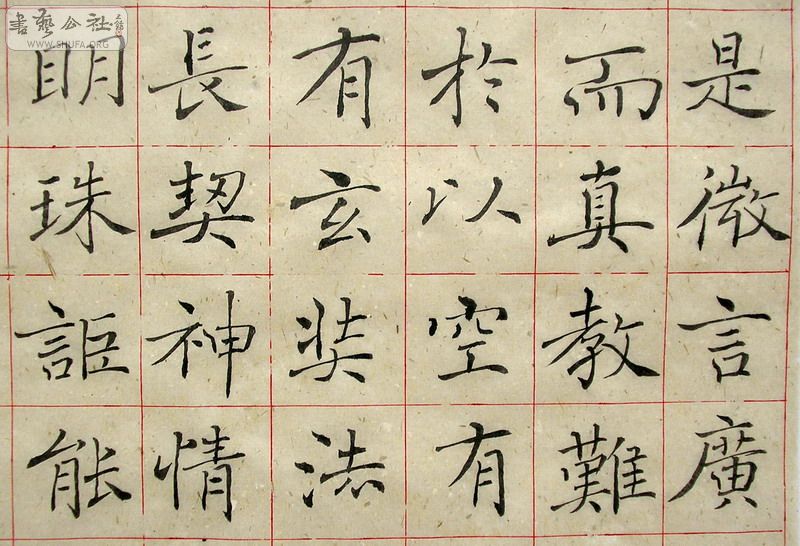 是微言廣
而真教難
於以空有
有玄奘法
長契神情
明珠詎能
書藝公社
WWW.SHUFA.ORG